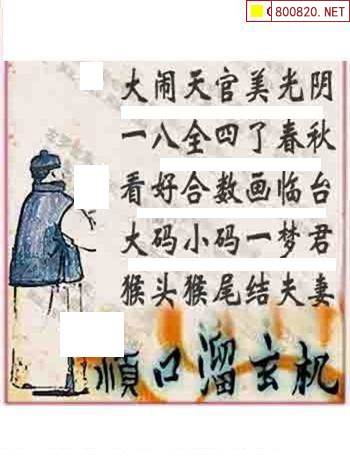 800820.NET
大闹天官美光阴
一八全四了春秋
看好合数画临台
大码小码一梦君
猴头猴尾结夫妻
顺口溜玄机